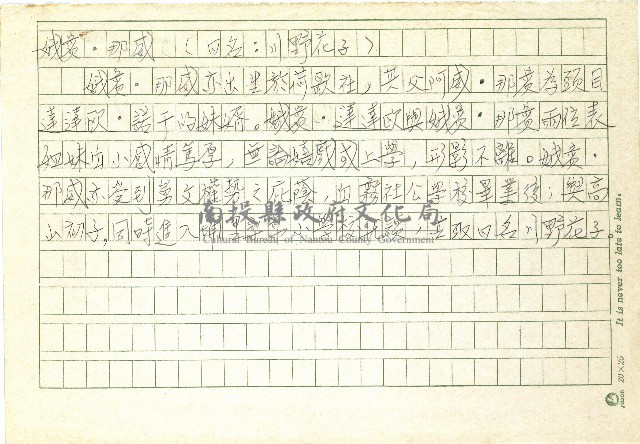 娥賓·那威(日名:川野花子)
娥賓·那威亦出生於荷歌社,其父阿威·那賓為頭目
達達歐·諾干的妹婿。娥賓·達達歐與娥賓·那賓兩位表
姐妹自小感情篤厚,無論嬉戲或上學,形影不離。娥賓·
那威亦受到其父權勢之庇蔭,由霧社公學校畢業後,與高
山初子,同時進入小學校,並取日名川野花子。
南投縣政府文化局
Cultural Bureau of Nantou County Government
It is never too late to learn.
20×25